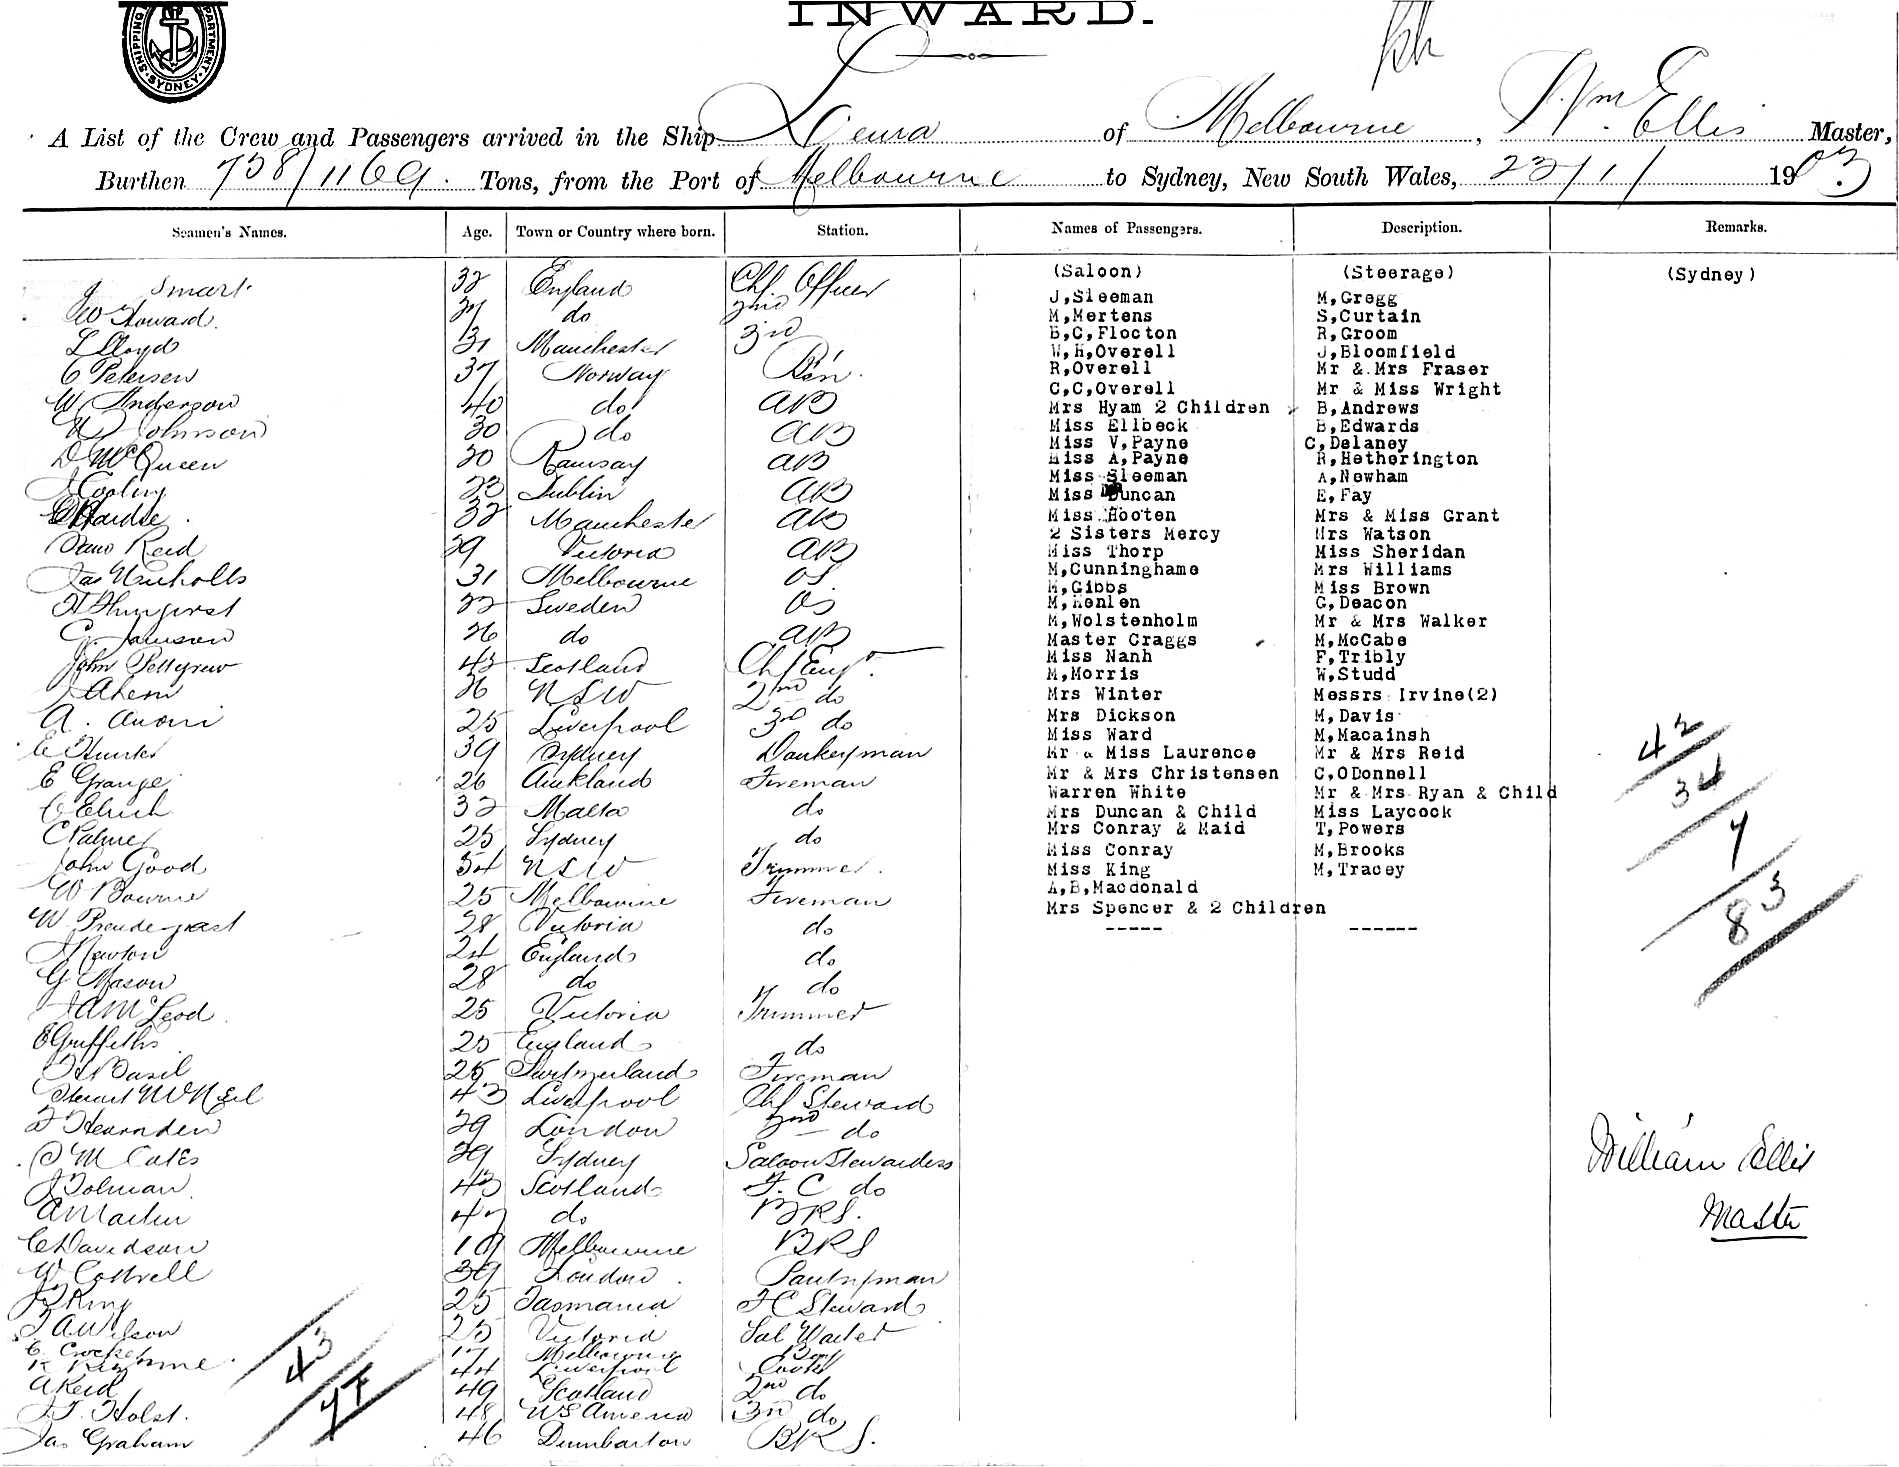 INWARD.
SHIPPING DEPARTMENT. SYDNEY
A List of the Crew and Passengers arrived in the Ship Leura of Melbourne, Wm. Ellis Master,
Burthen 738/1169. Tons, from the Port of Melbourne to Sydney, New South Wales, 23/1/ 1903
Seamen's Names. Age. Town or Country where born. Station. Names of Passengers. Description. Remarks.
(Saloon) (Steerage) (Sydney)
J Smart 32 England Chf Officer
W Howard. do 2nd
L Lloyd 31 Manchester 3rd
C Petersen 37 Norway
W Anderson 40 do AB
Johnson 30 do AB
D McQueen 30 Ramsay AB
Dublin AB
32 Manchester AB
Reid 29 Victoria AB
Jas Nicholls 31 Melbourne OS
22 Sweden OS
26 do AB
John Pettigrew 43 Scotland Chf Engr.
J Ahern 26 NSW 2nd do
A. 25 Liverpool 3rd do
39 Sydney Donkeyman
E Grange 26 Auckland Fireman
32 Malta do
C Palmer 25 Sydney do
John Good 54 NSW Trimmer.
W Bourne 25 Melbourne Fireman
W Prendergast 28 Victoria do
Newton 24 England do
G Mason 28 do do
McLeod 25 Victoria Trimmer
E Griffiths 25 England do
Basil 25 Switzerland Fireman
Stuart McNeil 43 Liverpool Chf Steward
F Hearnden 29 London 2nd do
M Cates 29 Sydney Saloon Stewardess
J Tolman 43 Scotland F. C do
A Martin do BRS.
C Davidson 19 Melbourne BRS
W Cottrell 39 London Pantryman
King 25 Tasmania FC Steward
Wilson 25 Victoria Sal Waiter
C Crocker 17 Melbourne
R 44 Liverpool Cook
A Reid 49 Scotland 2nd do
Holst. 48 US America 3rd do
Jas Graham 46 Dumbarton BRS.
J,Sleeman M,Gregg
M,Mertens S,Curtain
B,C,Flocton R,Groom
W,H,Overell J,Bloomfield
R,Overell Mr & Mrs Fraser
C,C,Overell Mr & Miss Wright
Mrs Hyam 2 Children B,Andrews
Miss Ellbeck B,Edwards
Miss V,Payne C,Delaney
Miss A,Payne R,Hetherington
Miss Sleeman A,Newham
Miss Duncan E,Fay
Miss Hooten Mrs & Miss Grant
2 Sisters Mercy Mrs Watson
Miss Thorp Miss Sheridan
M,Cunninghame Mrs Williams
M,Gibbs Miss Brown
M,Henlen G,Deacon
M,Wolstenholm Mr & Mrs Walker
Master Craggs M,McCabe
Miss Nanh F,Tribly
M,Morris W,Studd
Mrs Winter Messrs Irvine(2)
Mrs Dickson M,Davis
Miss Ward M,Macainsh
Mr & Miss Laurence Mr & Mrs Reid
Mr & Mrs Christensen C,ODonnell
Warren White Mr & Mrs Ryan & Child
Mrs Duncan & Child Miss Laycock
Mrs Conray & Maid T,Powers
Miss Conray M,Brooks
Miss King M,Tracey
A,B,Macdonald
Mrs Spencer & 2 Children
----- ------
42
34
7
83
William Ellis
Master
43